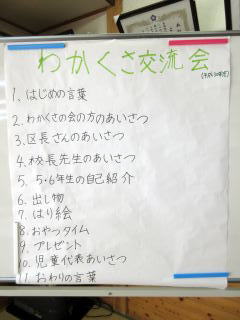 わかくさ交流会
1、はじめの言葉
2、わかくさの会の方のあいさつ
3、区長さんのあいさつ
4、校長先生のあいさつ
5、5・6年生の自己紹介
6、出し物
7、はり絵
8、おやつタイム
9、プレゼント
10、児童代表あいさつ
11、おわりの言葉